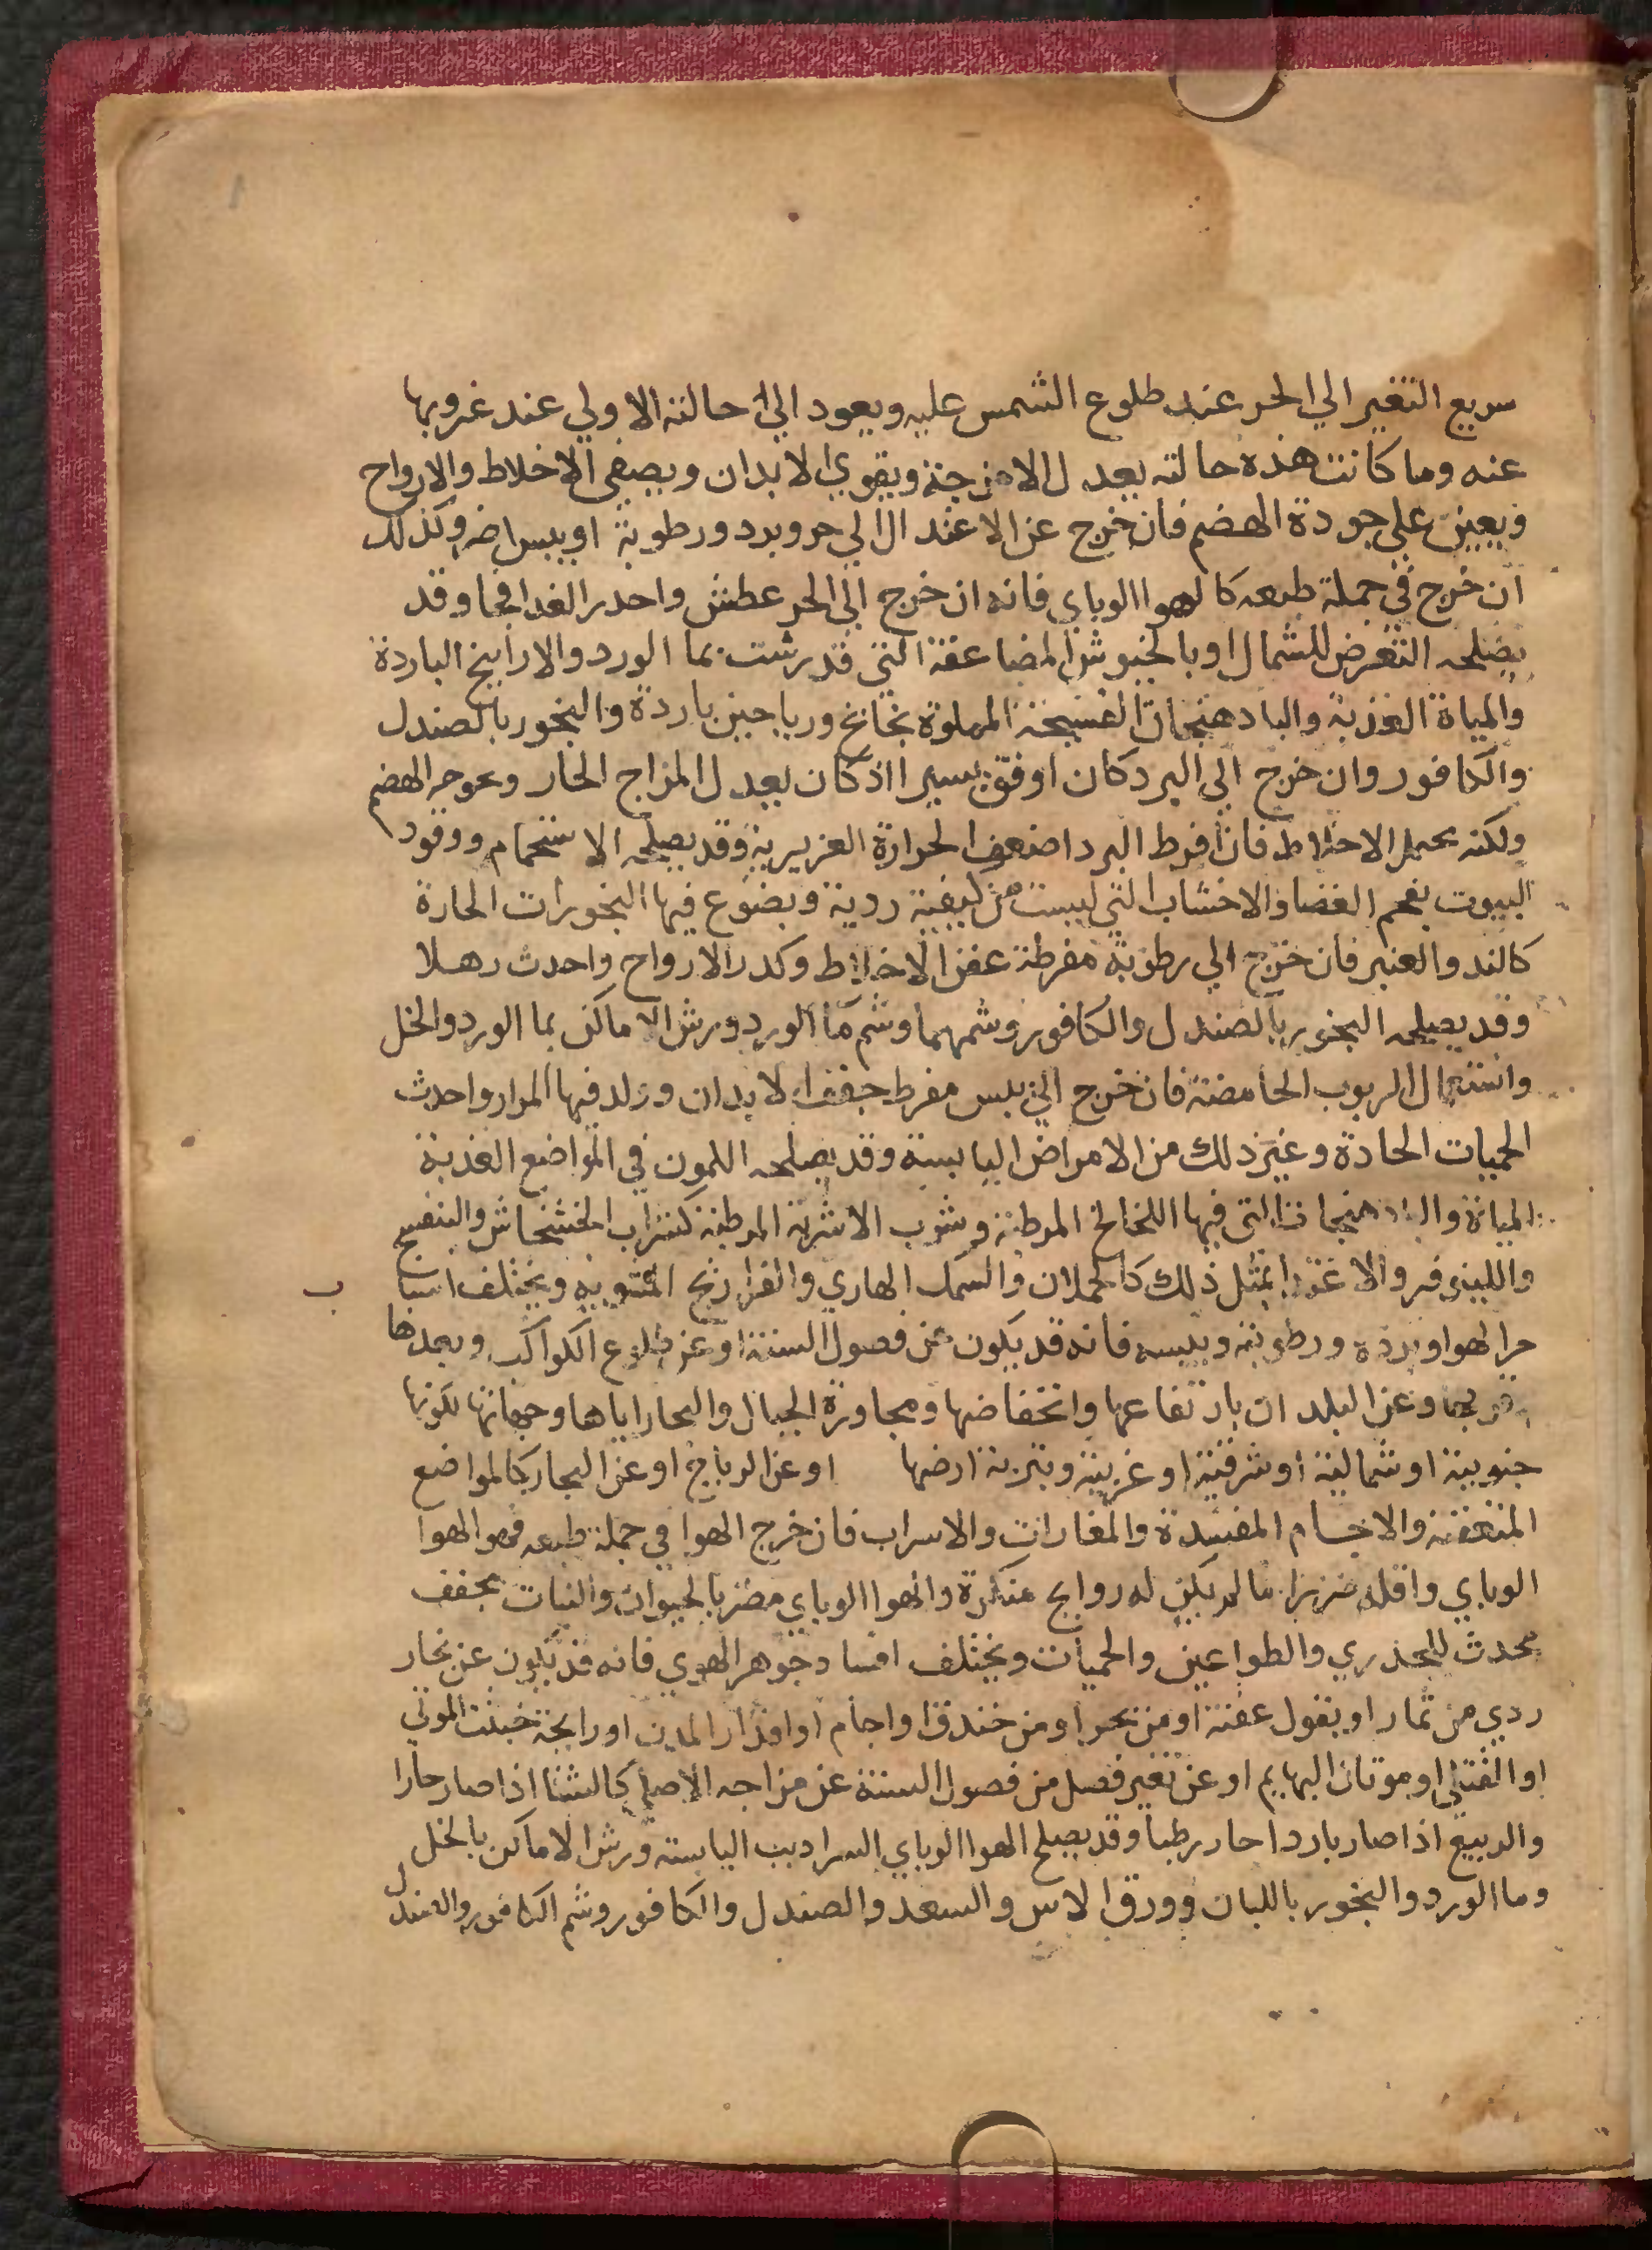 سريع التغير الي الحر عند طلوع الشمس عليه ويعود الي حالته الاولي عند غروبها
عنه وما كانت هذه حالته يعدل الامزجة ويقوي الابدان ويصفي الاخلاط والارواح
ويعين علي جودة الهضم فان خرج عن الاعتدال الي حر وبرد ورطوبة او يبس اضر وكذلك
ان خرج في جملة طبعه كالهوا الوباي فانه ان خرج الي الحر عطش واحدر الغدا فجا وقد
يصلحه التعرض للشمال او بالخيوش المضاعفة التي قد رشت بما الورد والاراييح الباردة
والمياة العذبة والبادهنجات الفسيحة المملوة نخانخ ورياحين باردة والبخور بالصندل
والكافور وان خرج الي البرد كان اوفق يسيرا اذ كان يعدل المزاج الحار ويجود الهضم
ولكنه يحيل الاخلاط فان افرط البرد اضعف الحرارة الغريرية وقد يصلحه الاستحمام ووقود
البيوت بفحم الغضا والاخشاب التي ليست من كيفية ردية ويضوع فيها البخورات الحارة
كالند والعنبر فان خرج الي رطوبة مفرطة عفن الاخلاط وكدر الارواح واحدث رهلا
وقد يصلحه البخور بالصندل والكافور وشمهما وشم ما الورد ورش الاماكن بما الورد والخل
واستعمال الربوب الحامضة فان خرج الي يبس مفرط جفف الابدان وولد فيها المرار واحدث
الحميات الحادة وغير ذلك من الامراض اليابسة وقد يصلحه اللمون في المواضع العذبة
المياة والبادهنجات التي فيها اللخالخ المرطبة وشرب الاشربة المرطبة كشراب الخشخاش والبنفسج
واللينوفر والاغتدا بمثل ذلك كالحملان والسمك الهاري والفراريج المشوية ويختلف اسبا ب
حر الهوا وبرده ورطوبته ويبسه فانه قد يكون عن فصول السنة او عن طلوع الكواكب وبعدها
وقربها وعن البلدان بارتفاعها وانخفاضها ومجاورة الجبال والبحار اياها وجهاتها لكونها
جنوبية او شمالية او شرقية او غربية وبتربة ارضها او عن الرياح او عن البحار كالمواضع
المتعفنة والاجسام المفسدة والمغارات والاسراب فان خرج الهوا في جملة طبعه فهو الهوا
الوباي واقله ضررا ما لم يكن له روايح منكرة والهوا الوباي مضر بالحيوان والنبات يجفف
محدث للجدري والطواعين والحميات ويختلف افساد جوهر الهوي فانه قد يكون عن بخار
ردي من ثمار او بقول عفنة او من بحر او من خندق او اجام او اقذار المدن او رايحة خبثت الموتي
او القتلي او موتان البهايم او عن تغير فصل من فصول السنة عن مزاجه الاصلي كالشتا اذا صار حارا
والربيع اذا صار باردا حار رطبا وقد يصلح الهوا الوباي السراديب اليابسة ورش الاماكن بالخل
وما الورد والبخور باللبان وورق الاس والسعد والصندل والكافور وشم الكافور والصندل